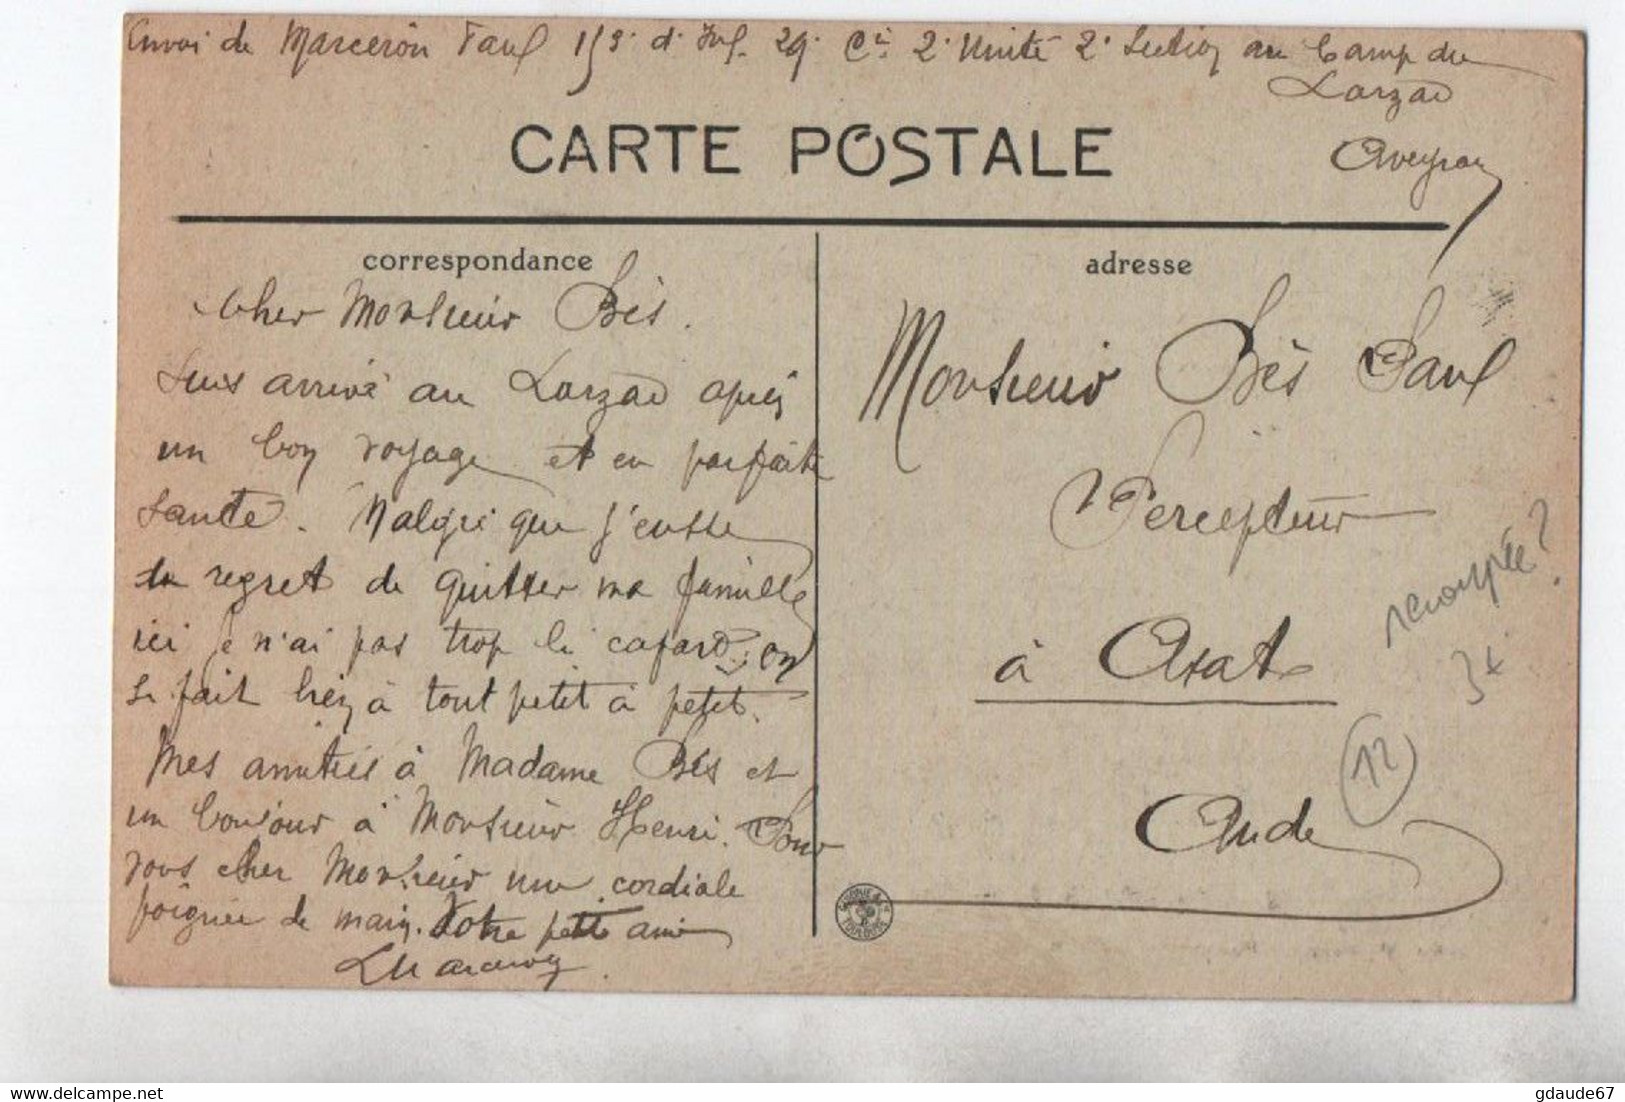 Envoi de Marceron Paul 153e d'Inf. 29e Cie 2e Unité 2e Section au Camp du
Larzac
Aveyron
CARTE POSTALE
correspondance
adresse
Cher Monsieur Bès.
Suis arrivé au Larzac après
un bon voyage et en parfaite
santé. Malgré que j'eusse
du regret de quitter ma famille
ici je n'ai pas trop le cafard; on
se fait bien à tout petit à petit.
Mes amitiés à Madame Bès et
un bonjour à Monsieur Henri. Pour
vous cher Monsieur une cordiale
poignée de main. Votre petit ami
Marceron
Monsieur Bès Paul
Percepteur
à Axat
Aude
recoupée?
3x
12
TOULOUSE
gdaude67